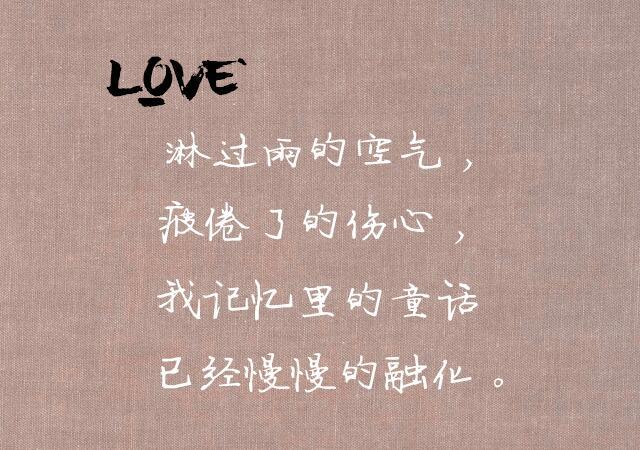 LOVE
淋过雨的空气，
疲倦了的伤心，
我记忆里的童话
已经慢慢的融化。